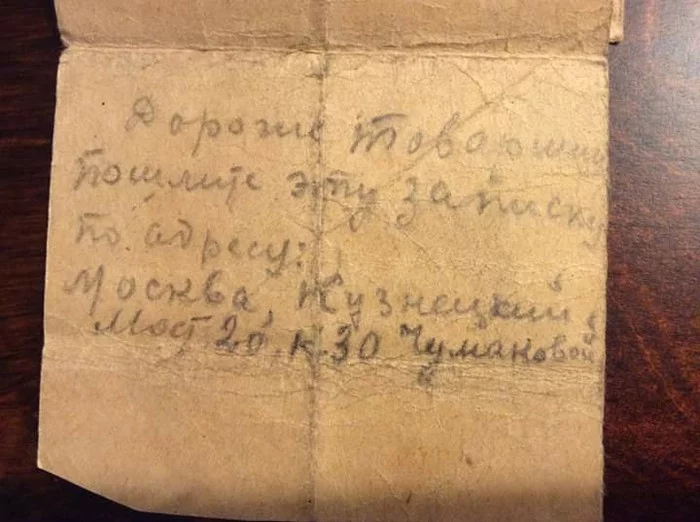 Дорогие товарищи
пошлите эту записку
по адресу:
Москва, Кузнецкий
Мост 20 к 30 Чумаковой